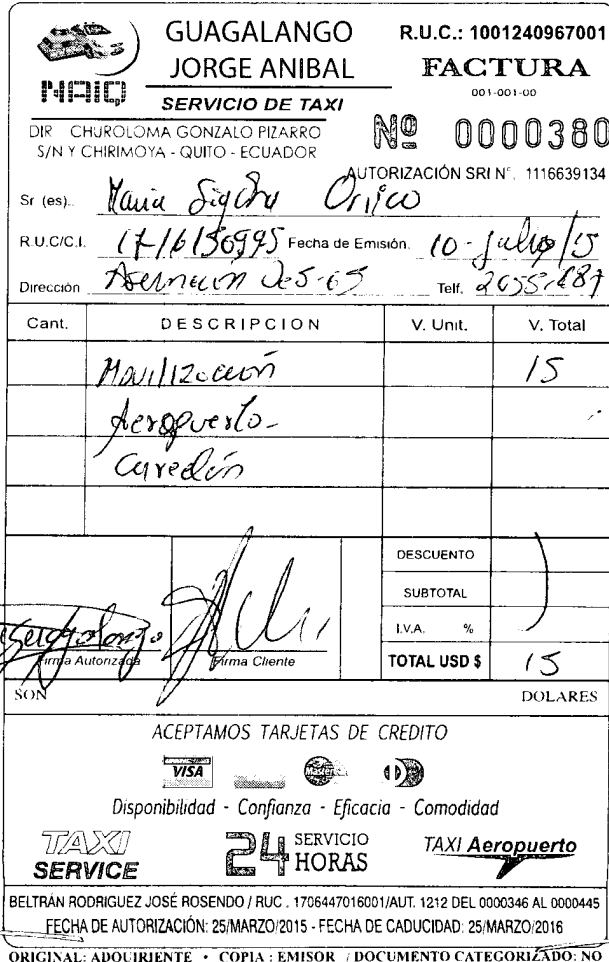 GUAGALANGO
JORGE ANIBAL
NAIQ
SERVICIO DE TAXI
DIR CHUROLOMA GONZALO PIZARRO
S/N Y CHIRIMOYA - QUITO - ECUADOR
R.U.C.: 1001240967001
FACTURA
001-001-00
Nº 0000380
AUTORIZACIÓN SRI Nº. 1116639134
Sr (es).. Maria
R.U.C/C.I. Fecha de Emisión. 10 - Julio/15
Dirección Asunción Telf.
Cant. DESCRIPCION V. Unit. V. Total
Movilización 15
Aeropuerto-
DESCUENTO
SUBTOTAL
I.V.A. %
TOTAL USD $ 15
Firma Autorizada Firma Cliente
SON DOLARES
ACEPTAMOS TARJETAS DE CREDITO
VISA
Disponibilidad - Confianza - Eficacia - Comodidad
TAXI SERVICE
24 SERVICIO HORAS
TAXI Aeropuerto
BELTRÁN RODRIGUEZ JOSÉ ROSENDO / RUC . 1706447016001/AUT. 1212 DEL 0000346 AL 0000445
FECHA DE AUTORIZACIÓN: 25/MARZO/2015 - FECHA DE CADUCIDAD: 25/MARZO/2016
ORIGINAL: ADQUIRIENTE • COPIA : EMISOR / DOCUMENTO CATEGORIZADO: NO